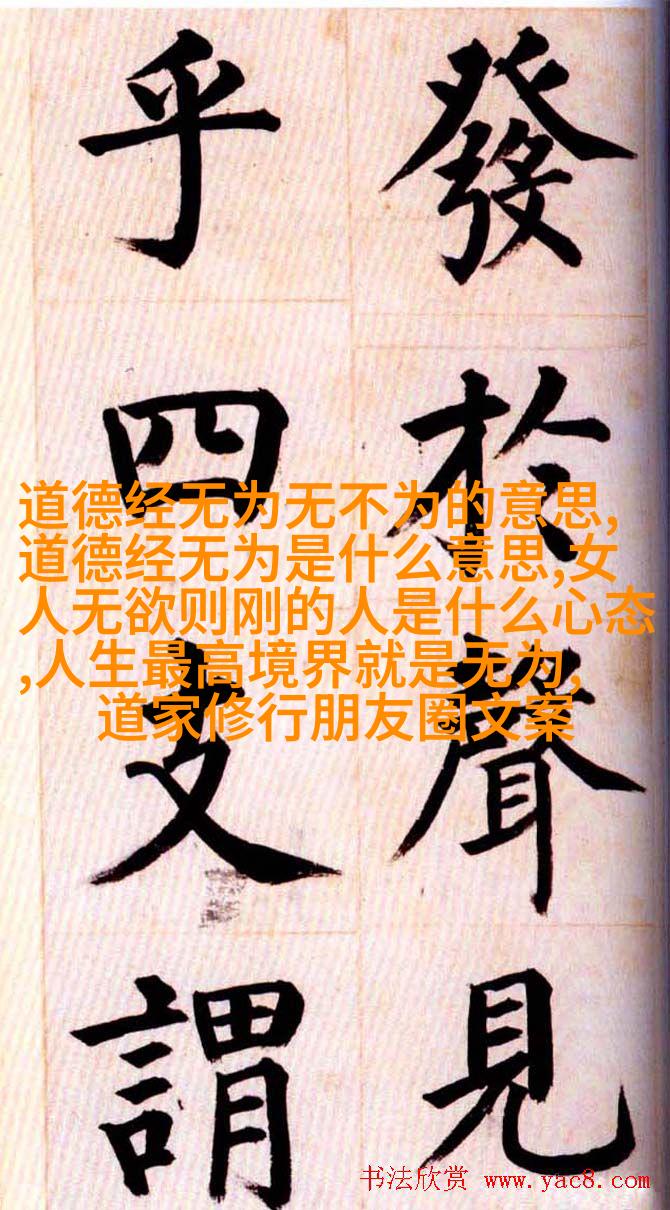 發於聲見
乎四支謂
道德经无为无不为的意思,
道德经无为是什么意思,女
人无欲则刚的人是什么心态
,人生最高境界就是无为,
道家修行朋友圈文案
书法欣赏 www.yac8.com